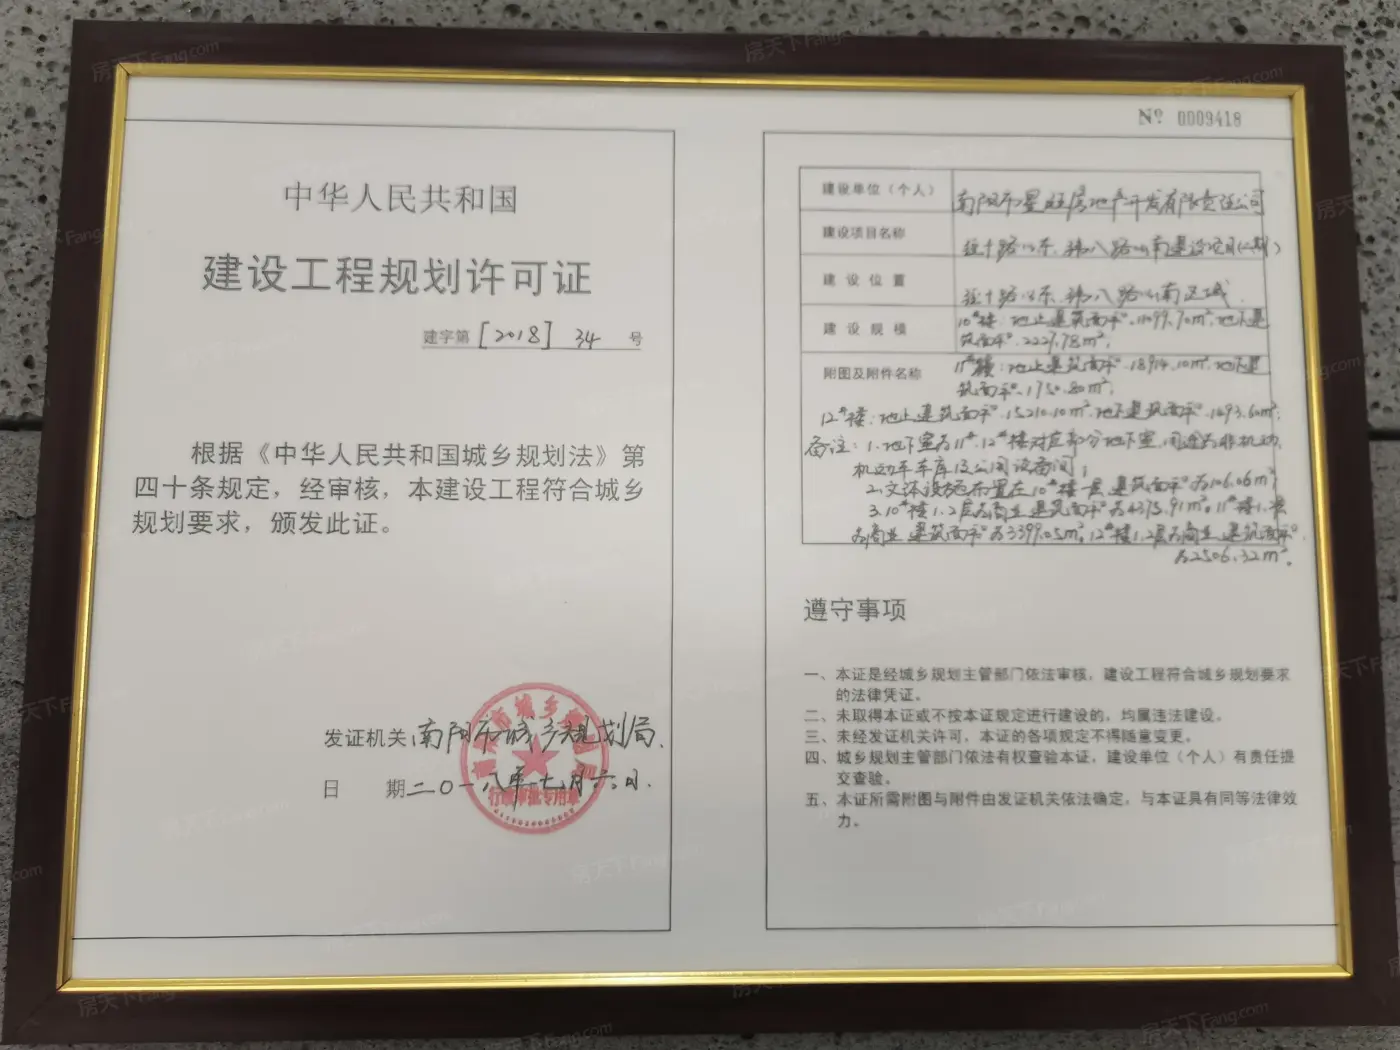 № 0009418
中华人民共和国
建设工程规划许可证
建字第 [2018] 34 号
根据《中华人民共和国城乡规划法》第
四十条规定，经审核，本建设工程符合城乡
规划要求，颁发此证。
发证机关 南阳市城乡规划局
日 期 二〇一八年七月六日
行政审批专用章
建设单位（个人） 南阳市星旺房地产开发有限责任公司
建设项目名称 经十路以东、纬八路以南建设项目(二期)
建设位置 经十路以东、纬八路以南区域
建设规模 10#楼：地上建筑面积 地下建
筑面积 2227.78m²；
附图及附件名称 11#楼：地上建筑面积 18914.10m² 地下建
筑面积 1750.80m²；
12#楼：地上建筑面积 15210.10m² 地下建筑面积 1493.60m²；
备注：1.地下室为11#、12#楼对应部分地下室，用途为非机动、
机动车车库及公用设备间；
2.文体设施布置在10#楼一层 建筑面积为106.06m²；
3.10#楼1.2层为商业 建筑面积为4375.91m²。11#楼1.2层
为商业 建筑面积为3399.05m²。12#楼1.2层为商业 建筑面积
为2506.32m²。
遵守事项
一、本证是经城乡规划主管部门依法审核，建设工程符合城乡规划要求
的法律凭证。
二、未取得本证或不按本证规定进行建设的，均属违法建设。
三、未经发证机关许可，本证的各项规定不得随意变更。
四、城乡规划主管部门依法有权查验本证，建设单位（个人）有责任提
交查验。
五、本证所需附图与附件由发证机关依法确定，与本证具有同等法律效
力。
房天下Fang.com